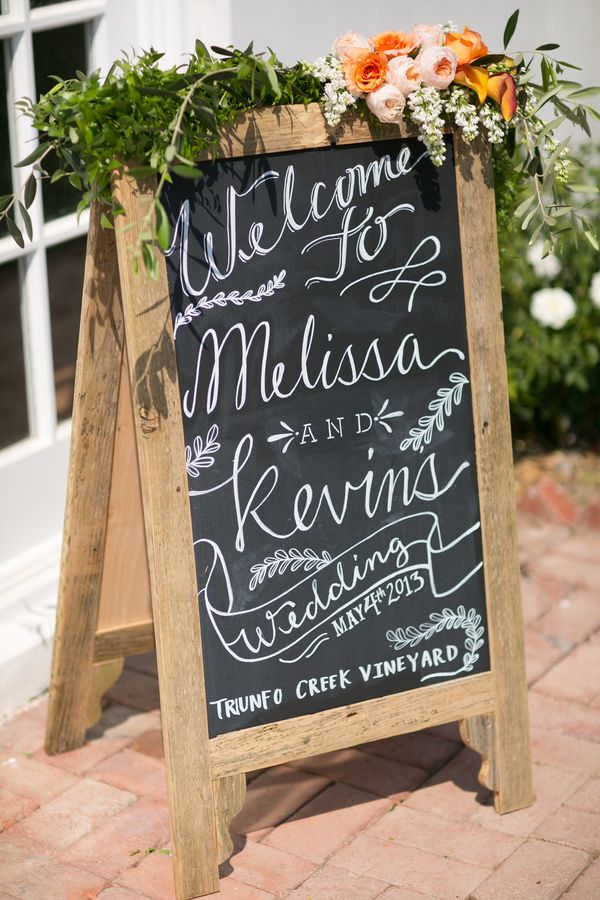 Welcome
To
Melissa
AND
Kevin's
Wedding
MAY 4th 2013
TRIUNFO CREEK VINEYARD